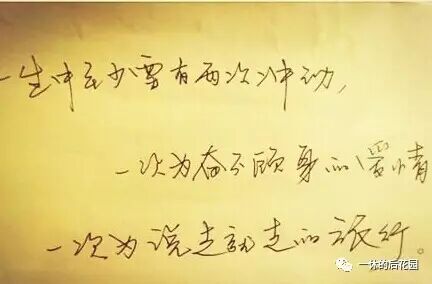 一生中至少要有两次冲动，
一次为奋不顾身的爱情
一次为说走就走的旅行。
一休的后花园